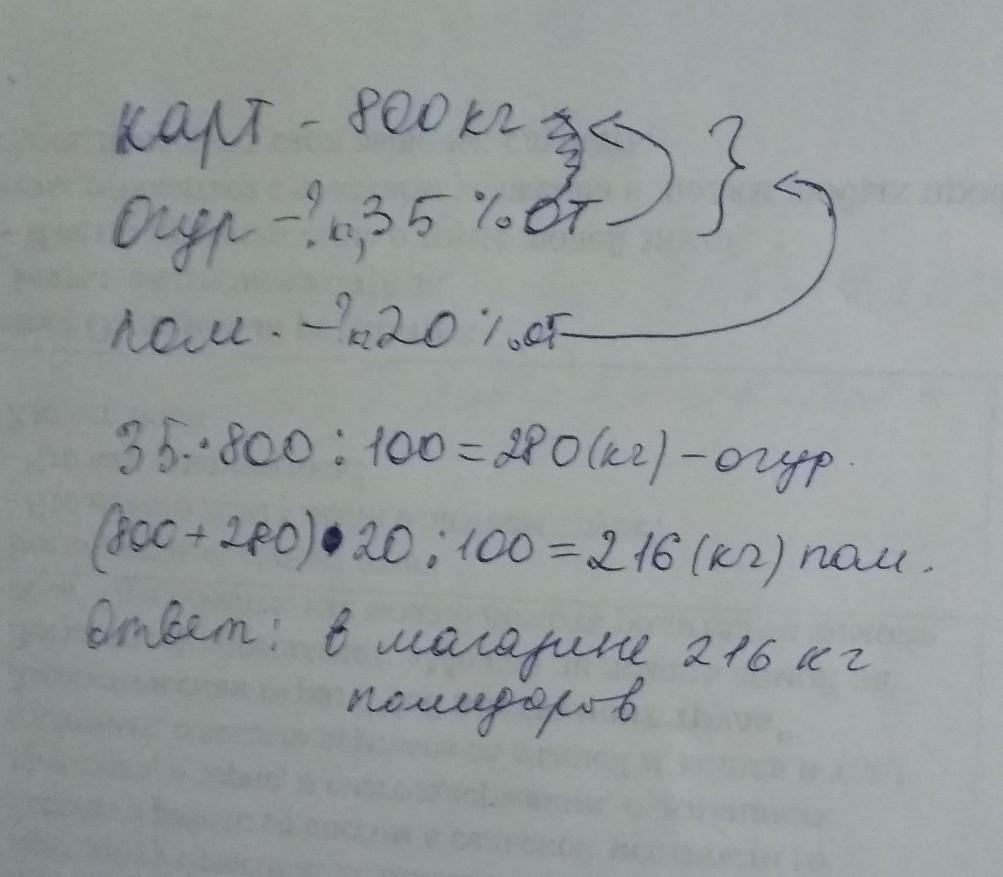 карт - 800 кг
огур - ? к, 35 % от
пом. - ? к 20 % от
35 · 800 : 100 = 280 (кг) - огур.
(800 + 280) • 20 : 100 = 216 (кг) пом.
Ответ: в магазине 216 кг
помидоров